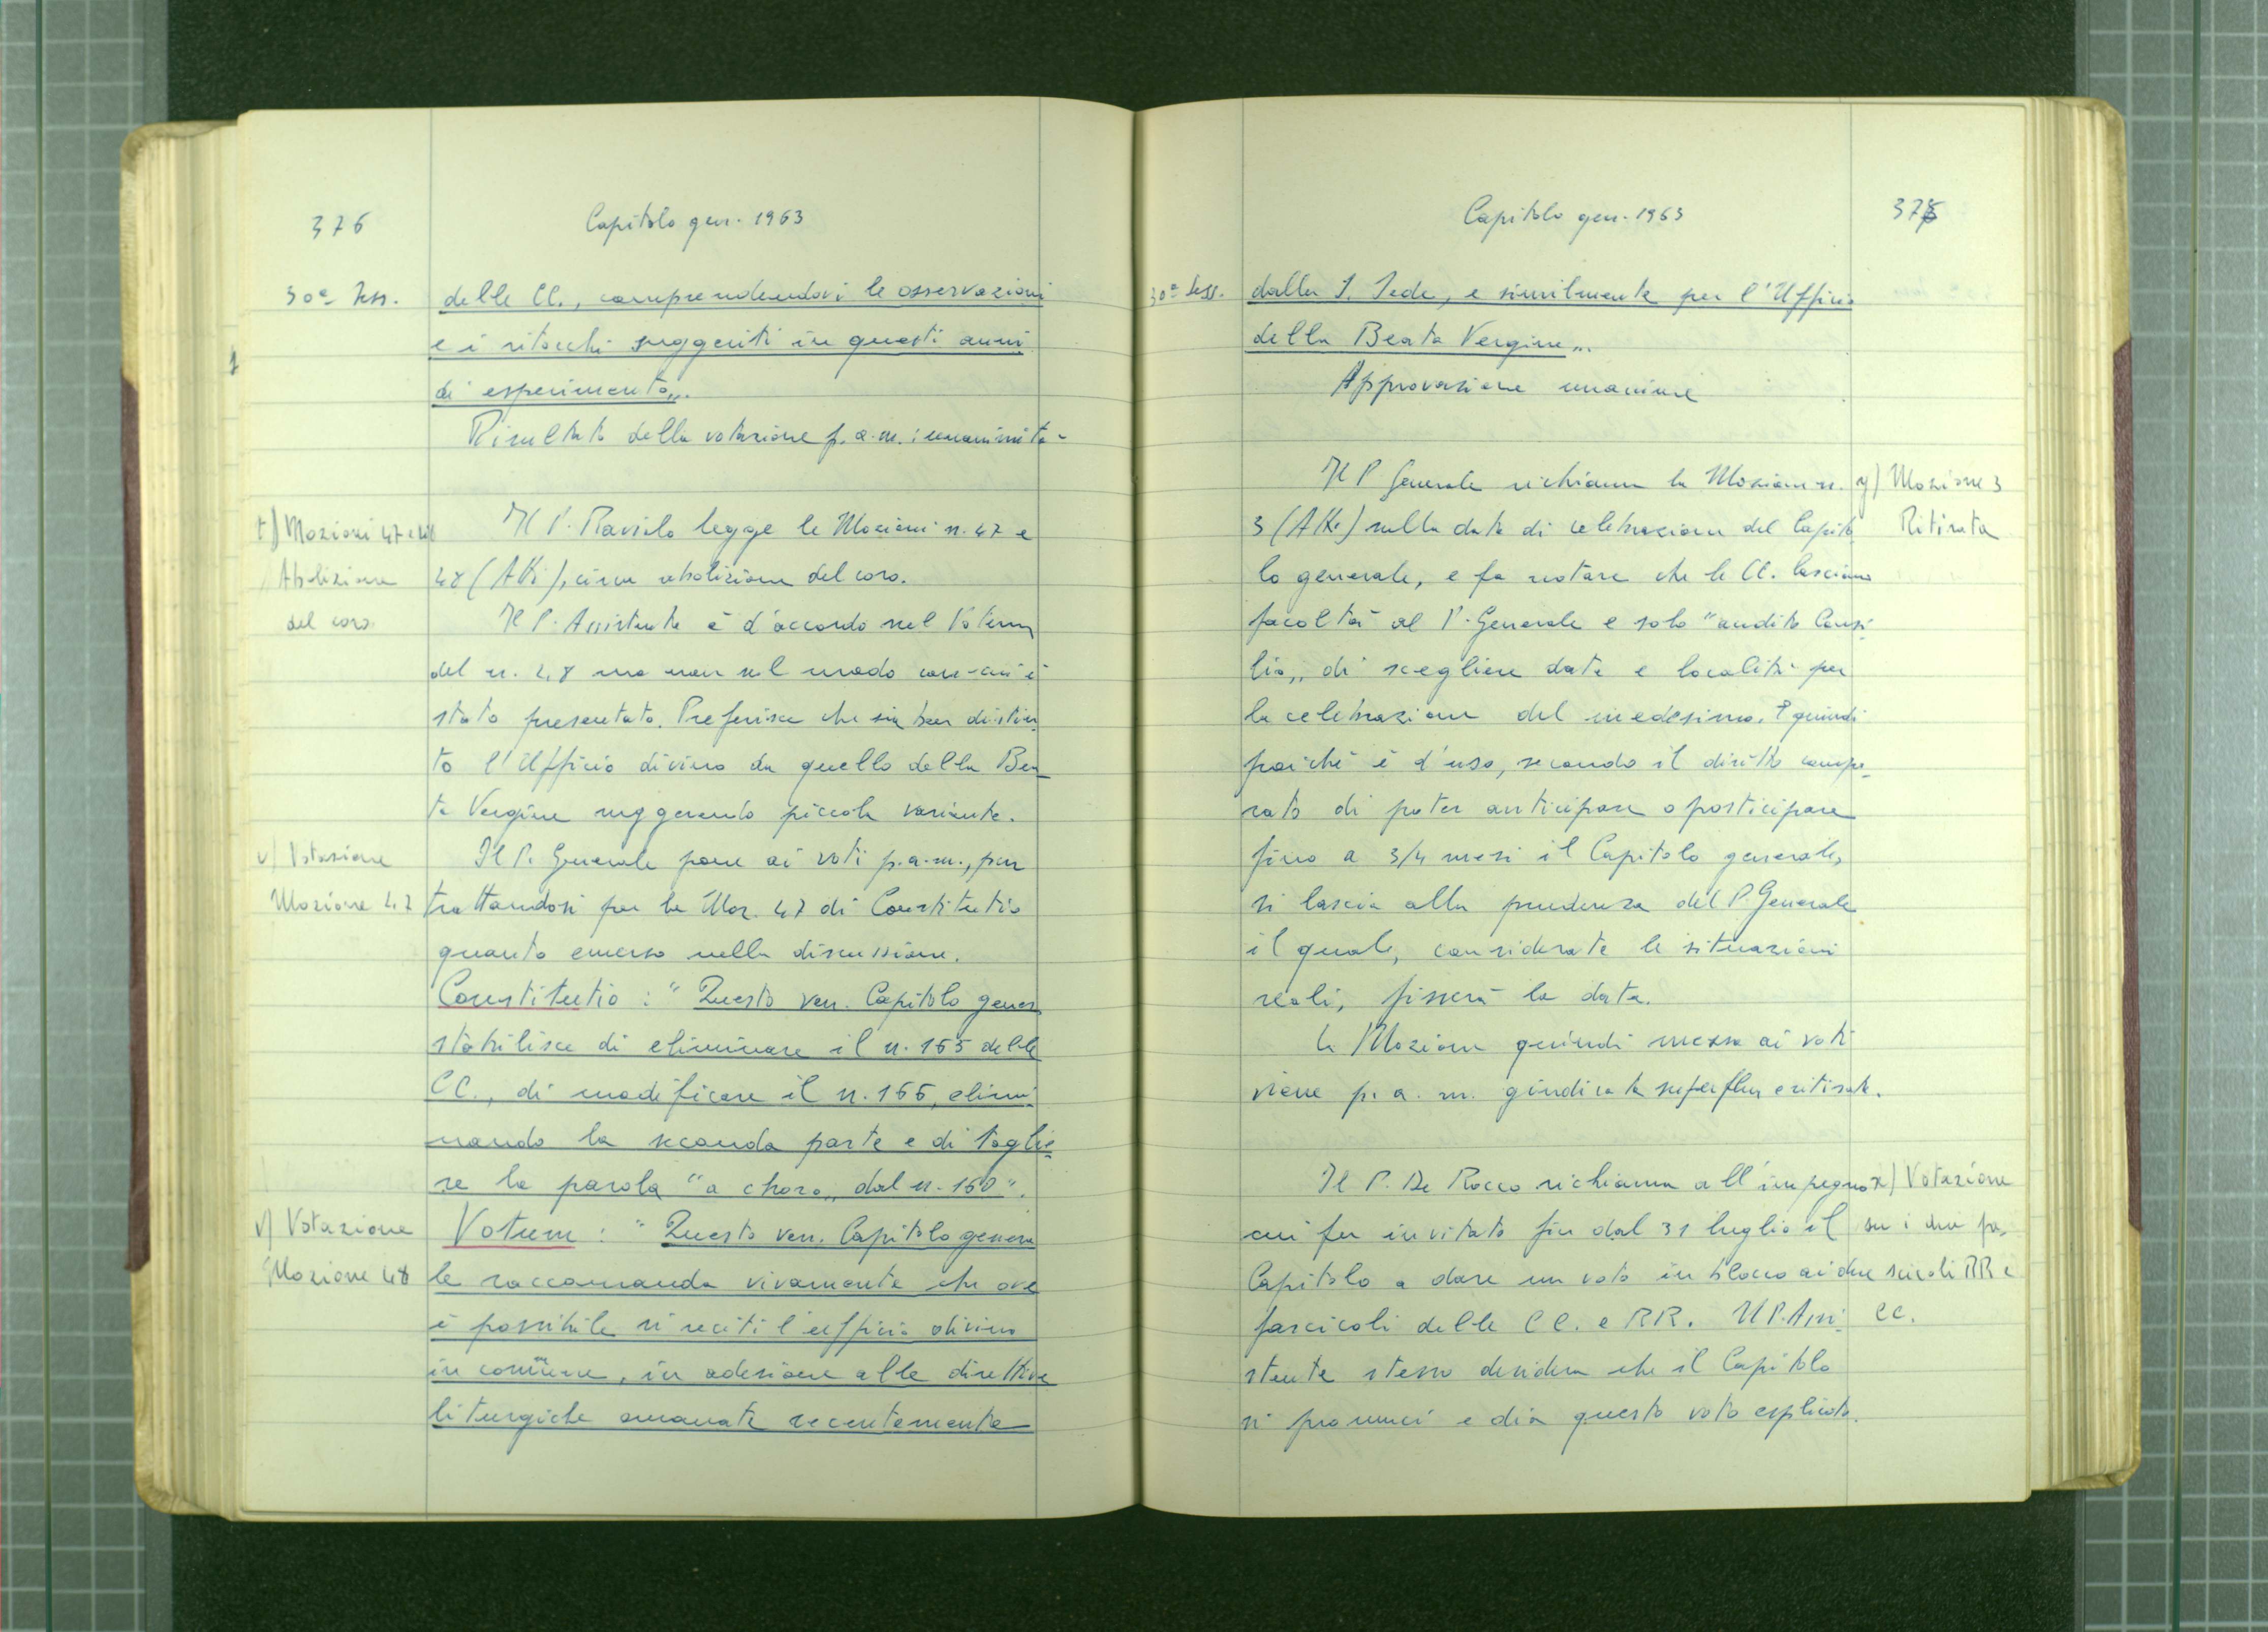 376
Capitolo gen. 1963
30ª Sess.
delle CC., comprendendovi le osservazioni
e i ritocchi suggeriti in questi anni
di esperimento„.
Risultato della votazione p. a. m.: unanimità.
t) Mozioni 47 e 48
Abolizione
del coro
Il P. Raviolo legge le Mozioni n. 47 e
48 (AKi), circa abolizione del coro.
Il P. Assistente è d'accordo sul Votum
del n. 48 ma non sul modo con cui è
stato presentato. Preferisce che sia ben distin-
to l'Ufficio divino da quello della Bea-
ta Vergine suggerendo piccola variante.
u) Votazione
Mozione 47
Il P. Generale pone ai voti p.a.m., pur
trattandosi per la Moz. 47 di Constitutio
quanto emerso nella discussione.
Constitutio: "Questo ven. Capitolo gener
stabilisce di eliminare il n. 165 delle
CC., di modificare il n. 166, elimi-
nando la seconda parte e di toglie-
re la parola "a choro„ dal n. 160".
v) Votazione
Mozione 48
Votum: "Questo ven. Capitolo genera
le raccomanda vivamente che ove
è possibile si reciti l'ufficio divino
in comune, in adesione alle direttive
liturgiche emanate recentemente
Capitolo gen. 1963
30ª Sess.
dalla S. Sede, e similmente per l'Ufficio
della Beata Vergine„.
Approvazione unanime
Il P. Generale richiama la Mozione n.
3 (AKi) sulla data di celebrazione del Capito-
lo generale, e fa notare che le CC. lasciano
facoltà al P. Generale e solo "audito Consi-
lio„ di scegliere data e località per
la celebrazione del medesimo. E quindi
poiché è d'uso, secondo il diritto compa-
rato di poter anticipare o posticipare
fino a 3/4 mesi il Capitolo generale,
si lascia alla prudenza del P. Generale
il quale, considerate le situazioni
reali, fisserà la data.
La Mozione quindi messa ai voti
viene p. a. m. giudicata superflua e ritirata.
y) Mozione 3
Ritirata
Il P. De Rocco richiama all'impegno
cui fu invitato fin dal 31 luglio il
Capitolo a dare un voto in blocco ai due
fascicoli delle CC. e RR. Il P. Assi-
stente stesso desidera che il Capitolo
si pronunci e dia questo voto esplicito.
x) Votazione
su i due fa-
scicoli RR e
CC.